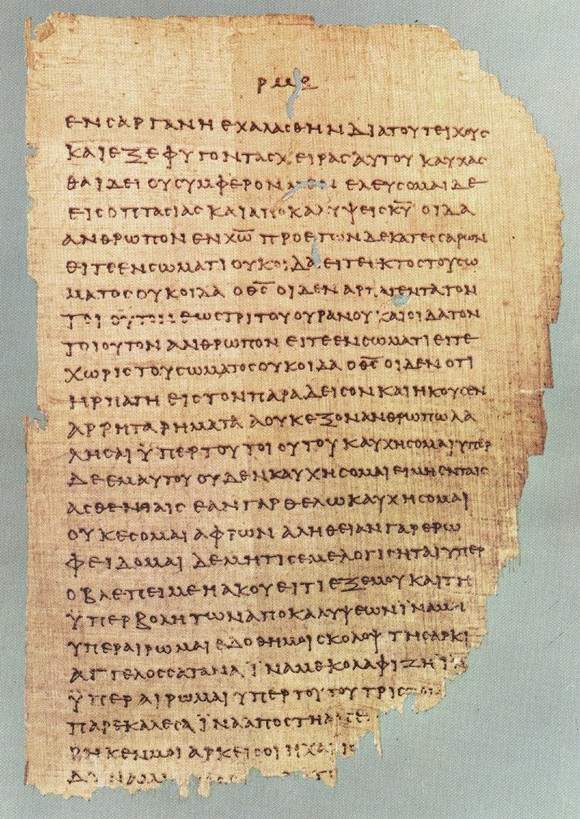 ΡΜΕ
ΕΝ ΣΑΡΓΑΝΗ ΕΧΑΛΑΣΘΗΝ ΔΙΑ ΤΟΥ ΤΕΙΧΟΥΣ
ΚΑΙ ΕΞΕΦΥΓΟΝ ΤΑΣ ΧΕΙΡΑΣ ΑΥΤΟΥ ΚΑΥΧΑΣ
ΘΑΙ ΔΕΙ ΟΥ ΣΥΜΦΕΡΟΝ ΕΛΕΥΣΟΜΑΙ ΔΕ
ΕΙΣ ΟΠΤΑΣΙΑΣ ΚΑΙ ΑΠΟΚΑΛΥΨΕΙΣ Κ̅Υ̅ ΟΙΔΑ
ΑΝΘΡΩΠΟΝ ΕΝ Χ̅Ω̅ ΠΡΟ ΕΤΩΝ ΔΕΚΑΤΕΣΣΑΡΩΝ
ΕΙΤΕ ΕΝ ΣΩΜΑΤΙ ΟΥΚ ΟΙΔΑ ΕΙΤΕ ΕΚΤΟΣ ΤΟΥ ΣΩ
ΜΑΤΟΣ ΟΥΚ ΟΙΔΑ Ο Θ̅Σ̅ ΟΙΔΕΝ ΑΡΠΑΓΕΝΤΑ ΤΟΝ
ΤΟΙΟΥΤΟΝ ΕΩΣ ΤΡΙΤΟΥ ΟΥΡΑΝΟΥ ΚΑΙ ΟΙΔΑ ΤΟΝ
ΤΟΙΟΥΤΟΝ ΑΝΘΡΩΠΟΝ ΕΙΤΕ ΕΝ ΣΩΜΑΤΙ ΕΙΤΕ
ΧΩΡΙΣ ΤΟΥ ΣΩΜΑΤΟΣ ΟΥΚ ΟΙΔΑ Ο Θ̅Σ̅ ΟΙΔΕΝ ΟΤΙ
ΗΡΠΑΓΗ ΕΙΣ ΤΟΝ ΠΑΡΑΔΕΙΣΟΝ ΚΑΙ ΗΚΟΥΣΕΝ
ΑΡΡΗΤΑ ΡΗΜΑΤΑ Α ΟΥΚ ΕΞΟΝ ΑΝΘΡΩΠΩ ΛΑ
ΛΗΣΑΙ ΫΠΕΡ ΤΟΥ ΤΟΙΟΥΤΟΥ ΚΑΥΧΗΣΟΜΑΙ ΥΠΕΡ
ΔΕ ΕΜΑΥΤΟΥ ΟΥΔΕΝ ΚΑΥΧΗΣΟΜΑΙ ΕΙ ΜΗ ΕΝ ΤΑΙΣ
ΑΣΘΕΝΕΙΑΙΣ ΕΑΝ ΓΑΡ ΘΕΛΩ ΚΑΥΧΗΣΟΜΑΙ
ΟΥΚ ΕΣΟΜΑΙ ΑΦΡΩΝ ΑΛΗΘΕΙΑΝ ΓΑΡ ΕΡΩ
ΦΕΙΔΟΜΑΙ ΔΕ ΜΗ ΤΙΣ ΕΜΕ ΛΟΓΙΣΗΤΑΙ ΥΠΕΡ
Ο ΒΛΕΠΕΙ ΜΕ Η ΑΚΟΥΕΙ ΤΙ ΕΞ ΕΜΟΥ ΚΑΙ ΤΗ
ΫΠΕΡΒΟΛΗ ΤΩΝ ΑΠΟΚΑΛΥΨΕΩΝ ΪΝΑ ΜΗ
ΥΠΕΡΑΙΡΩΜΑΙ ΕΔΟΘΗ ΜΟΙ ΣΚΟΛΟΨ ΤΗ ΣΑΡΚΙ
ΑΓΓΕΛΟΣ ΣΑΤΑΝΑ ΪΝΑ ΜΕ ΚΟΛΑΦΙΖΗ ΪΝΑ
ΫΠΕΡΑΙΡΩΜΑΙ ΥΠΕΡ ΤΟΥΤΟΥ ΤΡΙΣ
ΠΑΡΕΚΑΛΕΣΑ ΪΝΑ ΑΠΟΣΤΗ
ΚΕΝ ΜΟΙ ΑΡΚΕΙ ΣΟΙ Η ΧΑΡΙΣ